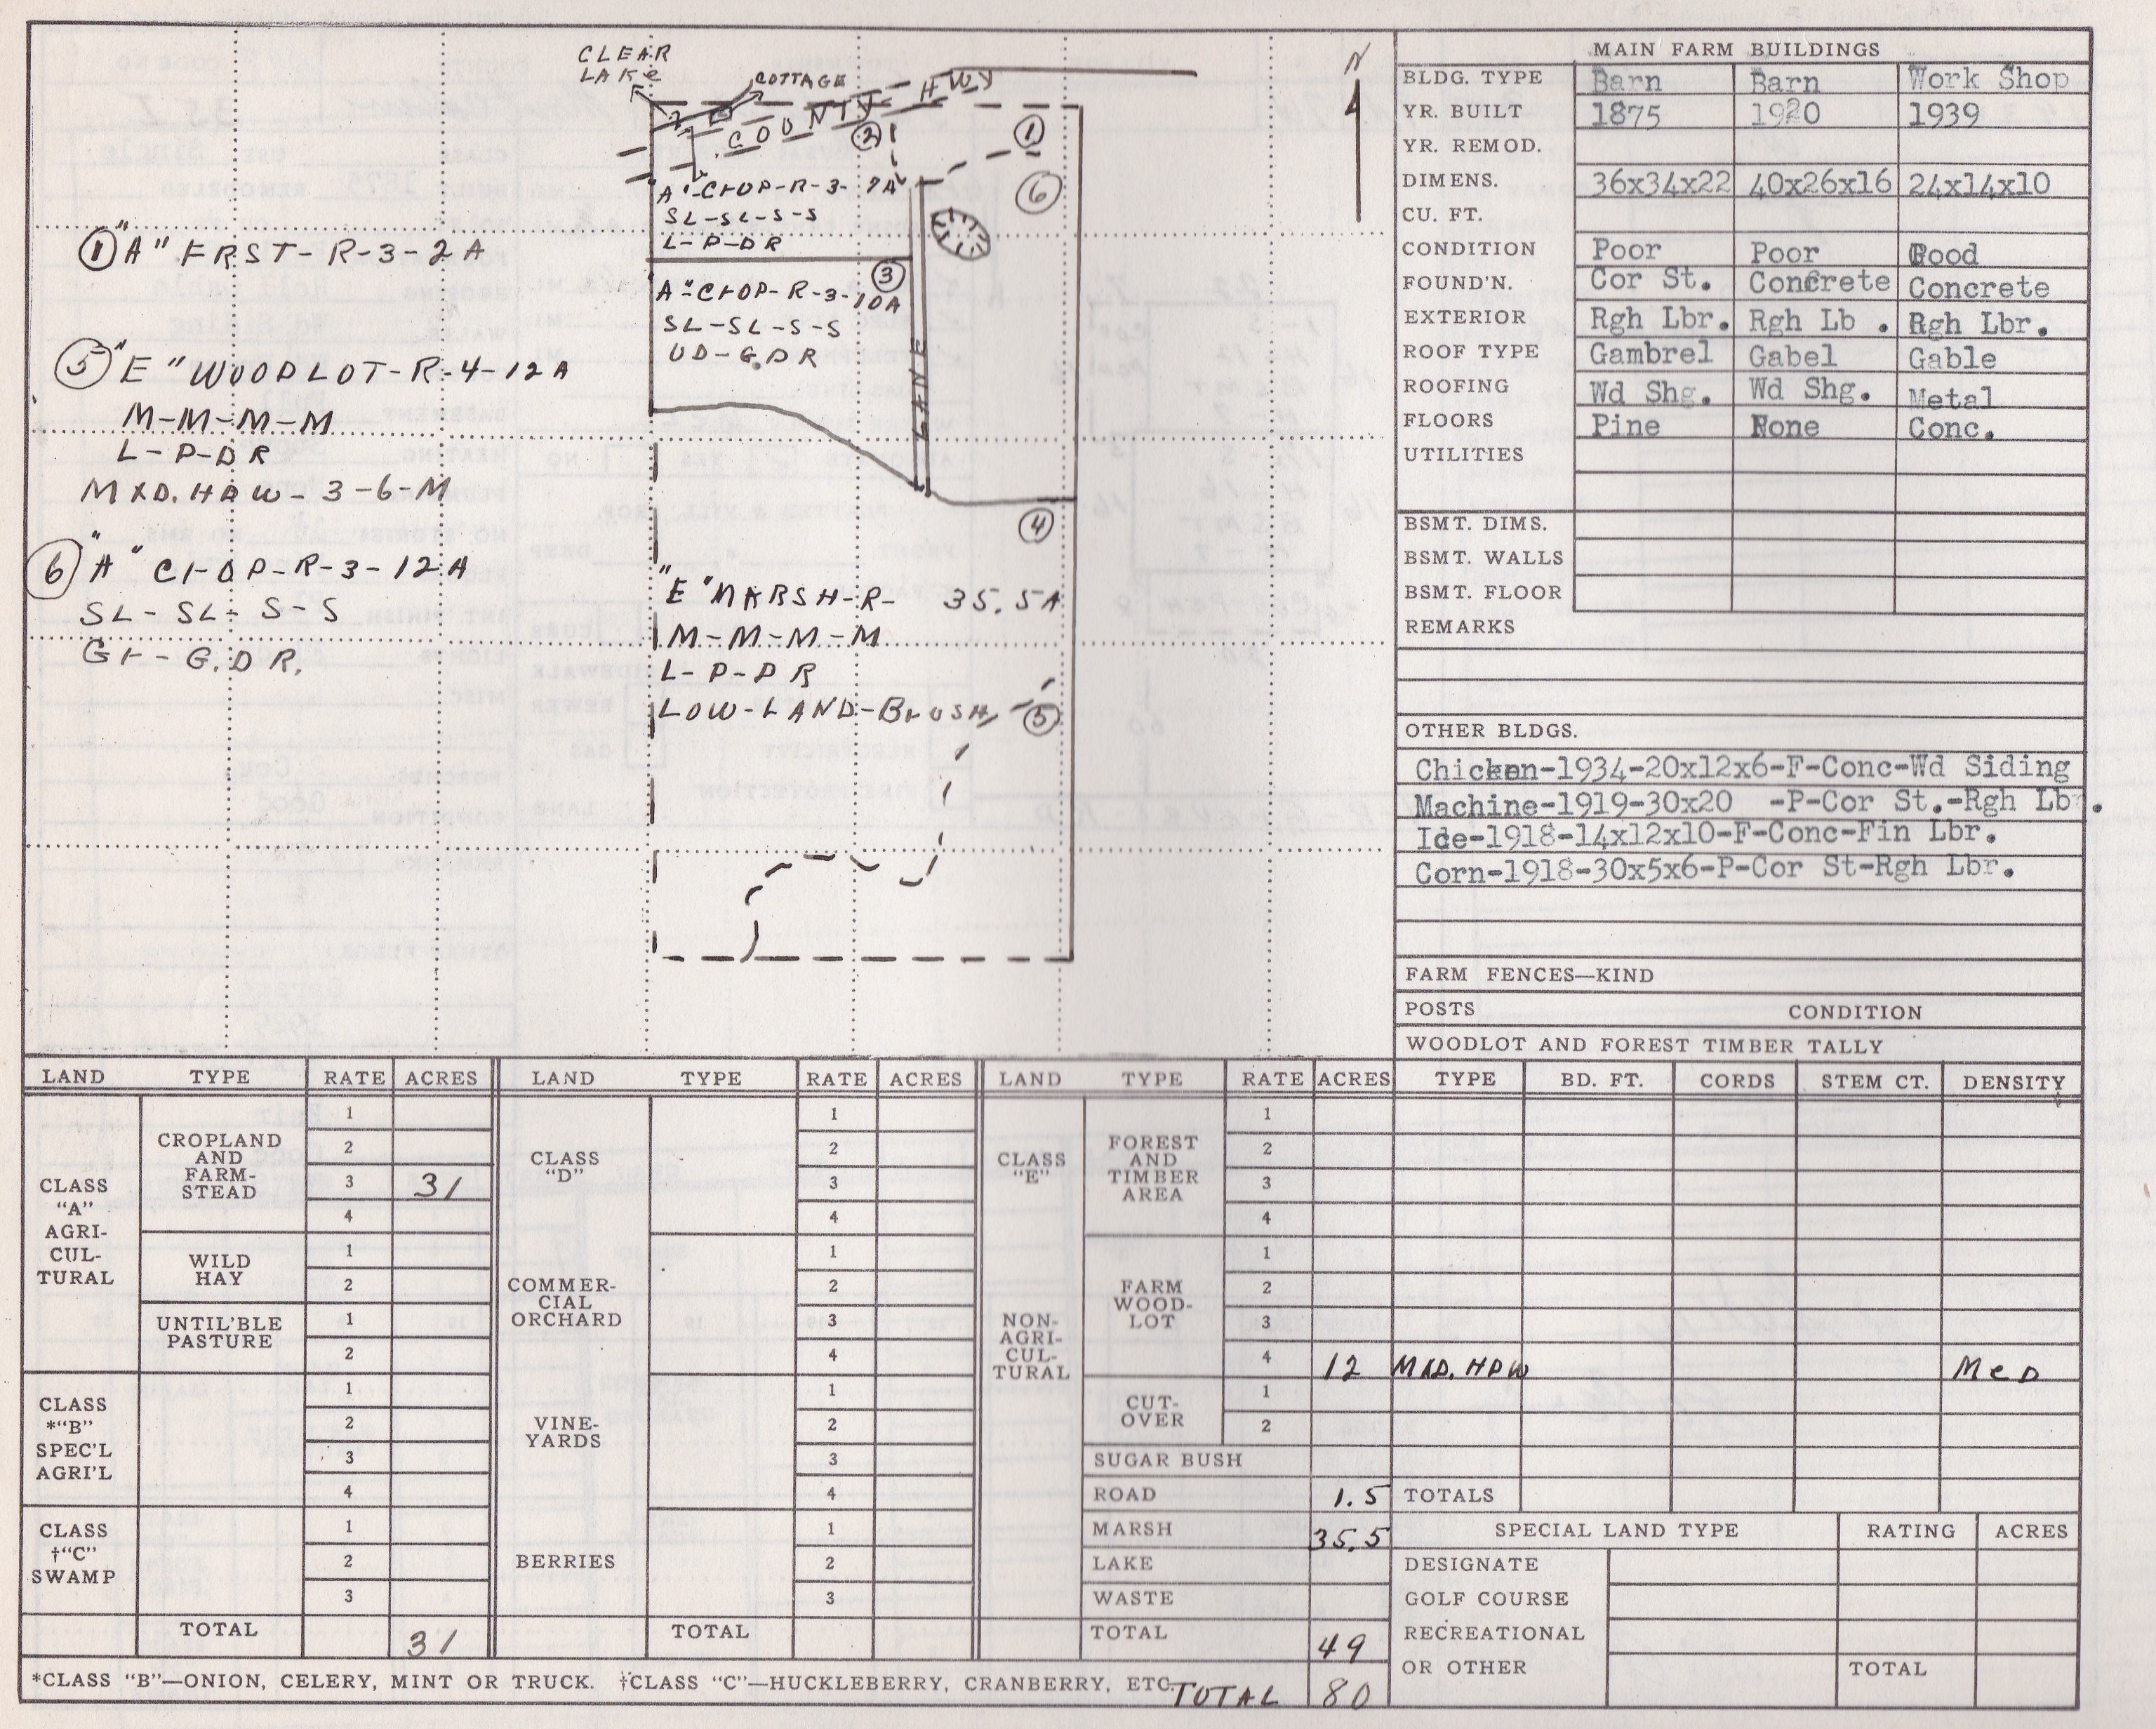 CLEAR
LAKE
COTTAGE
COUNTY HWY
N
②
①
⑥
"A"-CROP-R-3-7A
SL-SL-S-S
L-P-DR
③
"A"-CROP-R-3-10A
SL-SL-S-S
UD-G.DR
LANE
① "A" FRST-R-3-2A
⑤ "E" WOODLOT-R-4-12A
M-M-M-M
L-P-DR
MXD. HDW-3-6-M
⑥ "A" CROP-R-3-12A
SL-SL-S-S
Gr-G.DR.
④
"E" MARSH-R- 35.5A
M-M-M-M
L-P-DR
LOW-LAND-Brush
⑤
MAIN FARM BUILDINGS
BLDG. TYPE Barn Barn Work Shop
YR. BUILT 1875 1920 1939
YR. REMOD.
DIMENS. 36x34x22 40x26x16 24x14x10
CU. FT.
CONDITION Poor Poor Good
FOUND'N. Cor St. Concrete Concrete
EXTERIOR Rgh Lbr. Rgh Lb . Rgh Lbr.
ROOF TYPE Gambrel Gabel Gable
ROOFING Wd Shg. Wd Shg. Metal
FLOORS Pine None Conc.
UTILITIES
BSMT. DIMS.
BSMT. WALLS
BSMT. FLOOR
REMARKS
OTHER BLDGS.
Chicken-1934-20x12x6-F-Conc-Wd Siding
Machine-1919-30x20 -P-Cor St.-Rgh Lbr.
Ice-1918-14x12x10-F-Conc-Fin Lbr.
Corn-1918-30x5x6-P-Cor St-Rgh Lbr.
FARM FENCES—KIND
POSTS CONDITION
WOODLOT AND FOREST TIMBER TALLY
TYPE BD. FT. CORDS STEM CT. DENSITY
MXD. HDW MeD
TOTALS
SPECIAL LAND TYPE RATING ACRES
DESIGNATE
GOLF COURSE
RECREATIONAL
OR OTHER TOTAL
LAND TYPE RATE ACRES
CLASS
"A"
AGRI-
CUL-
TURAL
CROPLAND
AND
FARM-
STEAD
1
2
3 31
4
WILD
HAY
1
2
UNTIL'BLE
PASTURE
1
2
CLASS
*"B"
SPEC'L
AGRI'L
1
2
3
4
CLASS
†"C"
SWAMP
1
2
3
TOTAL 31
LAND TYPE RATE ACRES
CLASS
"D"
1
2
3
4
COMMER-
CIAL
ORCHARD
1
2
3
4
VINE-
YARDS
1
2
3
4
BERRIES
1
2
3
TOTAL
LAND TYPE RATE ACRES
CLASS
"E"
NON-
AGRI-
CUL-
TURAL
FOREST
AND
TIMBER
AREA
1
2
3
4
FARM
WOOD-
LOT
1
2
3
4 12
CUT-
OVER
1
2
SUGAR BUSH
ROAD 1.5
MARSH 35.5
LAKE
WASTE
TOTAL 49
*CLASS "B"—ONION, CELERY, MINT OR TRUCK. †CLASS "C"—HUCKLEBERRY, CRANBERRY, ETC.
TOTAL 80